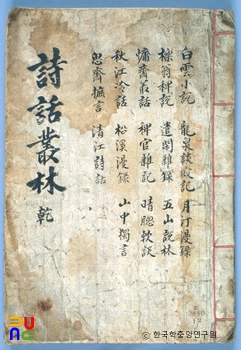 白雲小說 龍泉談寂記 月汀漫録
櫟翁稗說 遣閑雜録 五山說林
慵齋叢話 稗官雜記 晴窓軟談
秋江冷話 松溪漫録 山中獨言
思齋摭言 清江詩話
詩話叢林 乾
EUAC
ⓒ 한국학중앙연구원